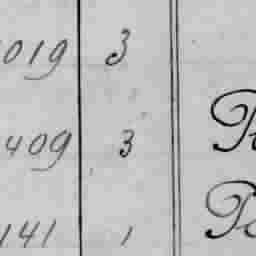 019 3
409 3
141 1